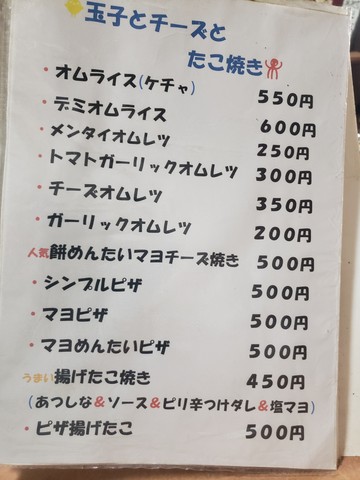 玉子とチーズと
たこ焼き
・オムライス(ケチャ) 550円
・デミオムライス 600円
・メンタイオムレツ 250円
・トマトガーリックオムレツ 300円
・チーズオムレツ 350円
・ガーリックオムレツ 200円
人気 餅めんたいマヨチーズ焼き 500円
・シンプルピザ 500円
・マヨピザ 500円
・マヨめんたいピザ 500円
うまい 揚げたこ焼き 450円
(あつしな&ソース&ピリ辛つけダレ&塩マヨ)
・ピザ揚げたこ 500円